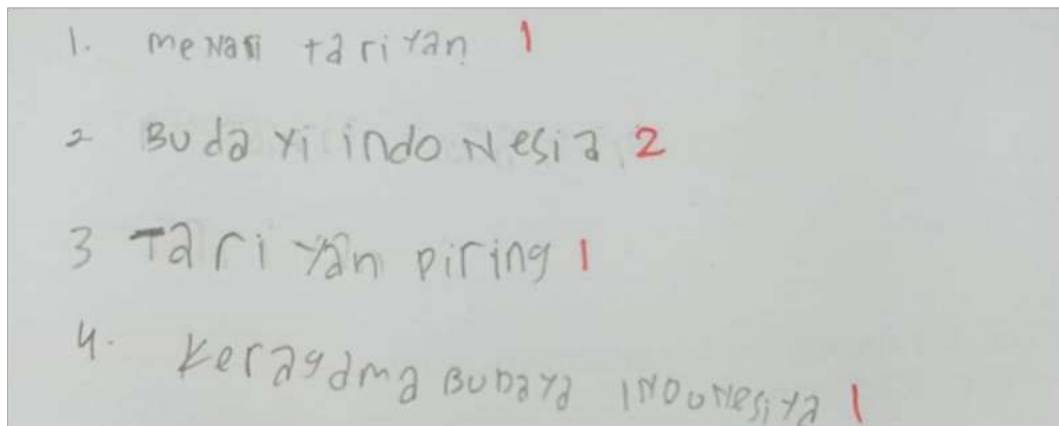 1. meNari tariyan 1
2 Budayi indoNesia 2
3 Tariyan piring 1
4. Keragama BuDaya INDoNesiya 1